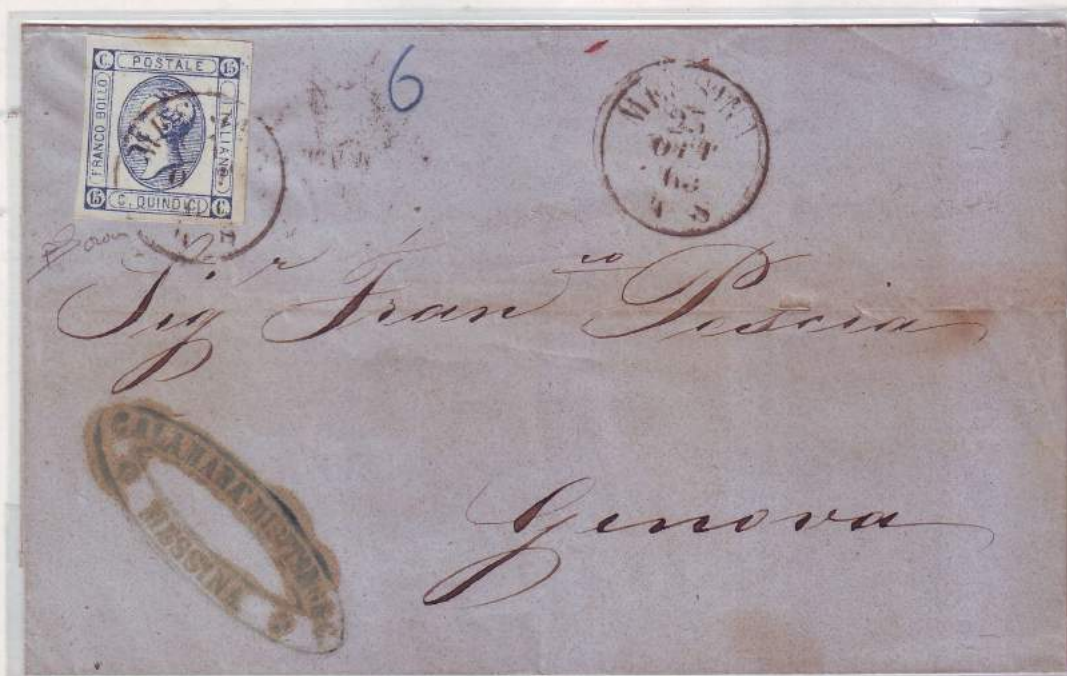 C. POSTALE 15
FRANCO BOLLO
ITALIANO
15 C. QUINDICI C.
6
MESSINA
25
OTT
63
4 S
Sig.r Fran.co Pescia
Genova
CALAMARA
MESSINA